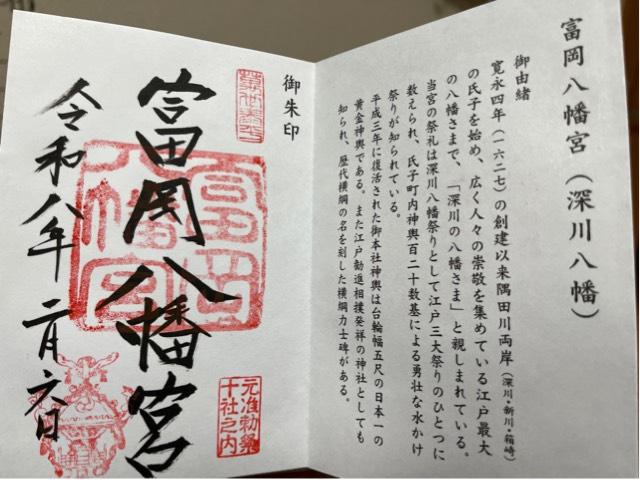 富岡八幡宮（深川八幡）
御由緒
寛永四年（一六二七）の創建以来隅田川両岸（深川・新川・箱崎）
の氏子を始め、広く人々の崇敬を集めている江戸最大
の八幡さまで、「深川の八幡さま」と親しまれている。
当宮の祭礼は深川八幡祭りとして江戸三大祭りのひとつに
数えられ、氏子町内神輿百二十数基による勇壮な水かけ
祭りが知られている。
平成三年に復活された御本社神輿は台輪幅五尺の日本一の
黄金神輿である。また江戸勧進相撲発祥の神社としても
知られ、歴代横綱の名を刻した横綱力士碑がある。
御朱印
富岡八幡宮
富岡
八幡宮
元准勅祭
十社之内
令和八年二月六日